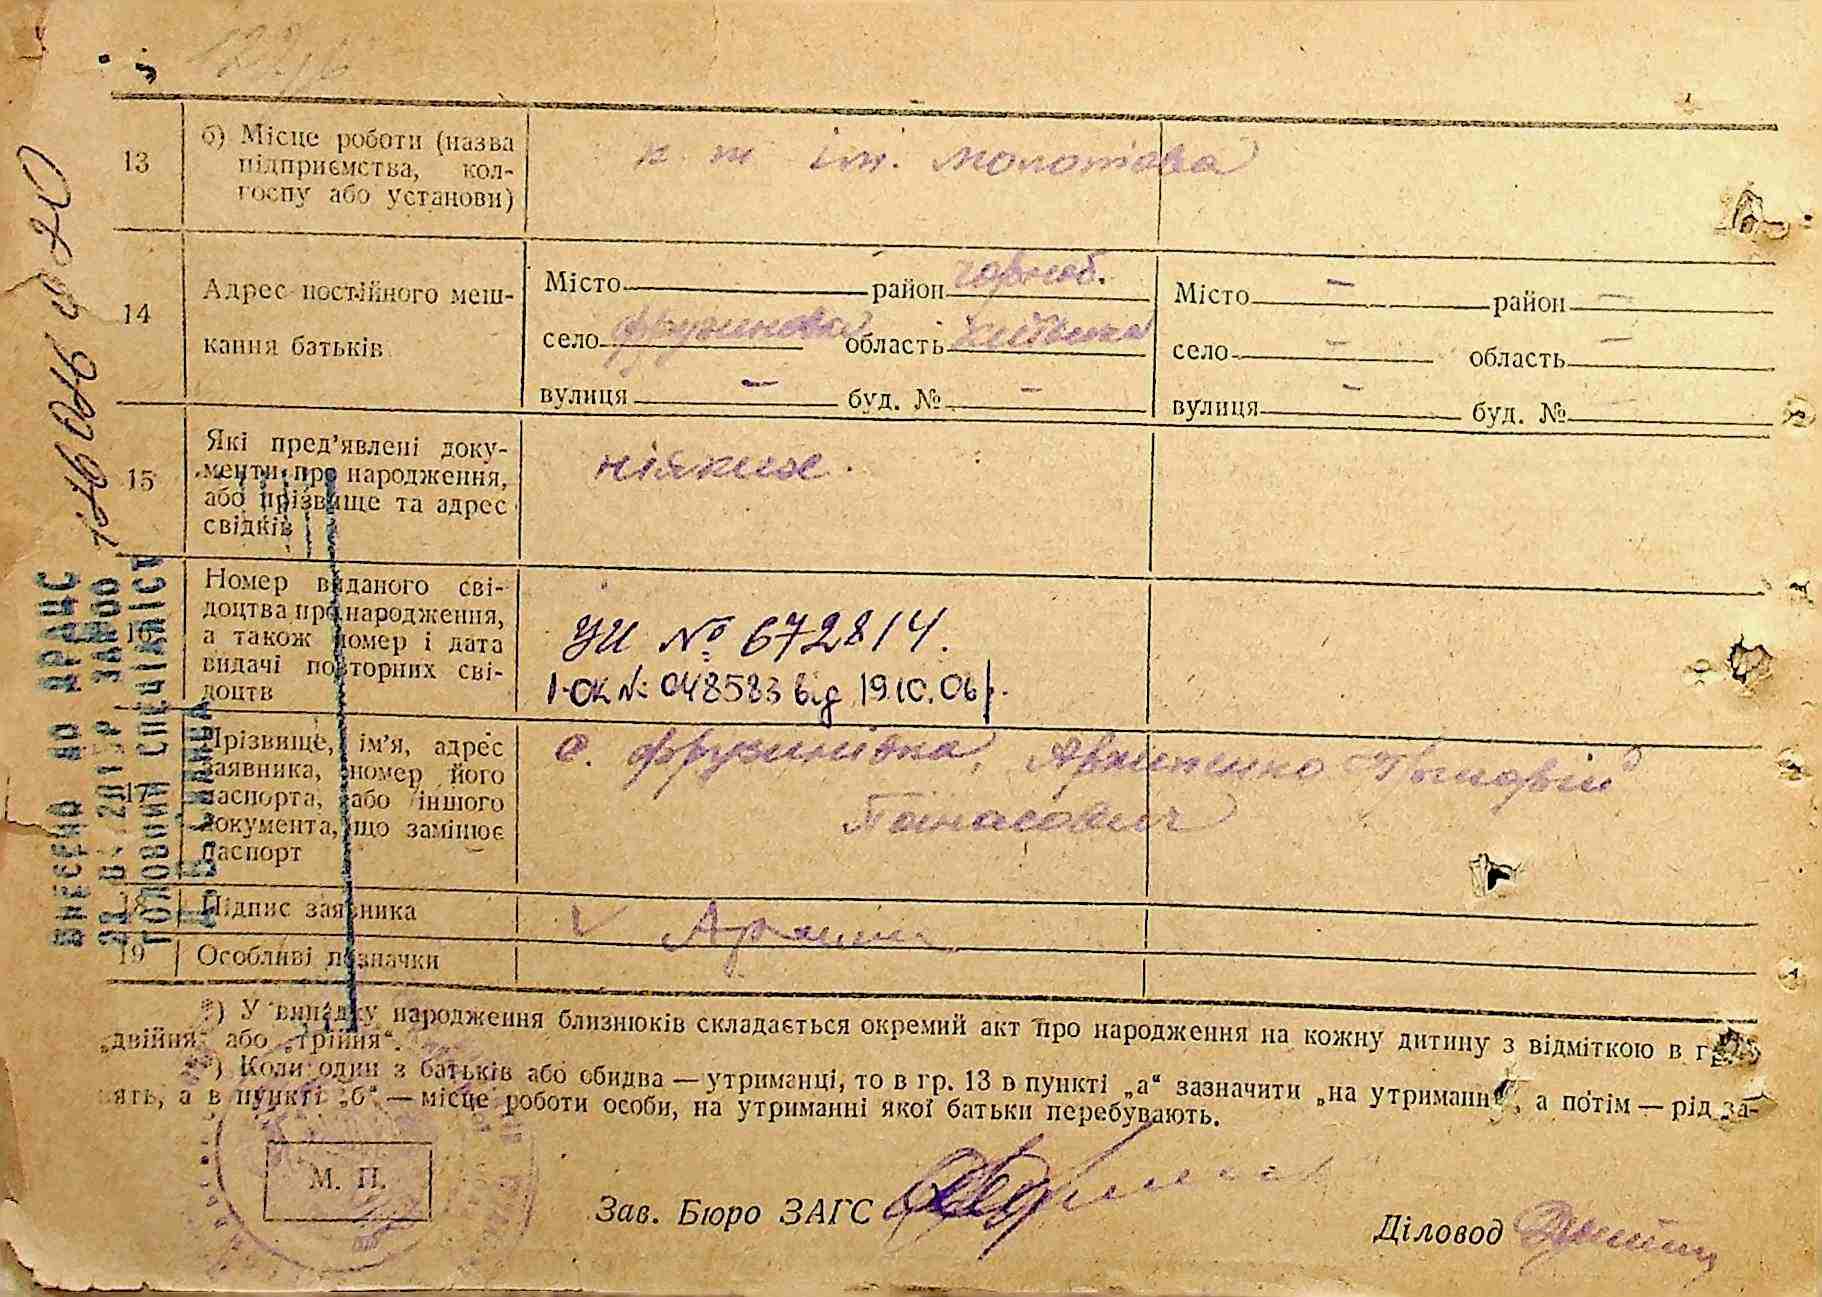 13
б) Місце роботи (назва
підприємства, кол-
госпу або установи)
ім. Молотова
14
Адрес постійного меш-
кання батьків
Місто район чорноб.
село область
вулиця - буд. № -
Місто - район -
село - область -
вулиця - буд. №
15
Які пред'явлені доку-
менти про народження,
або прізвище та адрес
свідків
ніяких.
16
Номер виданого сві-
доцтва про народження,
а також номер і дата
видачі повторних сві-
доцтв
УИ № 672814.
І-ОК № 048583 від 19.10.06р.
17
Прізвище, ім'я, адрес
заявника, номер його
паспорта, або іншого
документа, що замінює
паспорт
с. Фрузинівка, Архипенко Григорій
Панасович
18
Підпис заявника
19
Особливі позначки
*) У випадку народження близнюків складається окремий акт про народження на кожну дитину з відміткою в гр.
„двійня“ або „трійня“.
*) Коли один з батьків або обидва — утриманці, то в гр. 13 в пункті „а“ зазначити „на утриманні“, а потім — рід за-
нять, а в пункті „б“ — місце роботи особи, на утриманні якої батьки перебувають.
М. П.
Зав. Бюро ЗАГС
Діловод
ВНЕСЕНО ДО ДРАЦС
ГОЛОВНИЙ СПЕЦІАЛІСТ